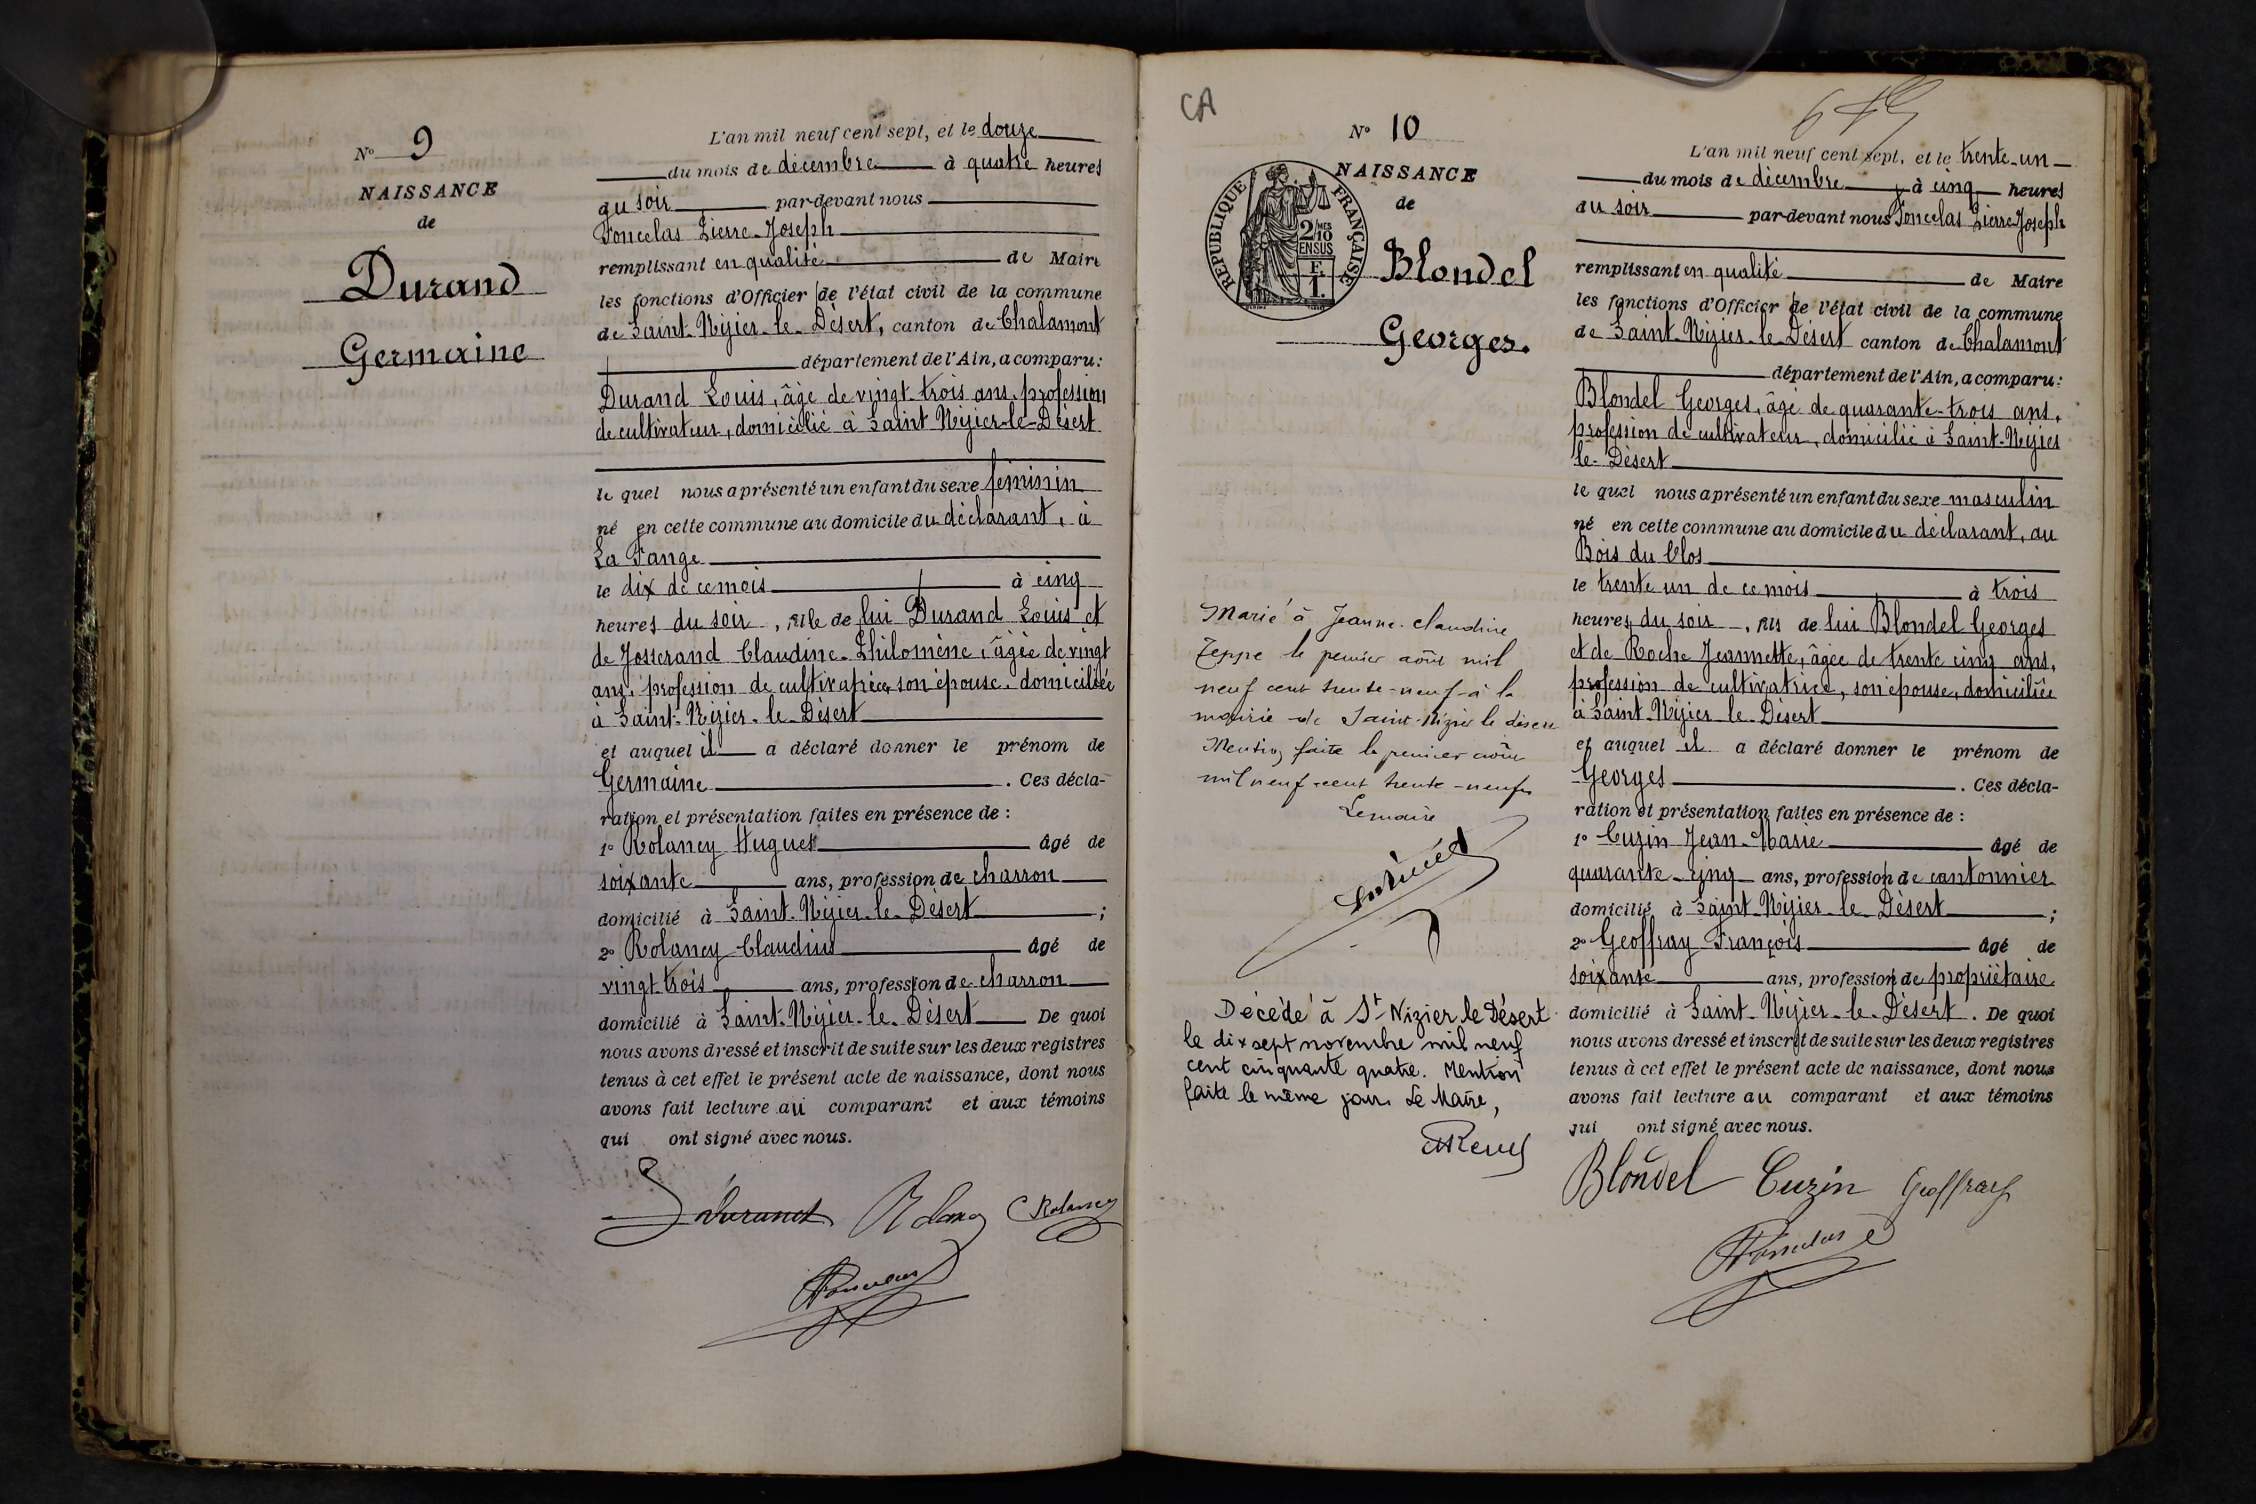 Nº 9
NAISSANCE
de
Durand
Germaine
L'an mil neuf cent sept, et le douze
du mois de décembre à quatre heures
du soir par-devant nous
Poncelas Pierre-Joseph
remplissant en qualité de Maire
les fonctions d'Officier de l'état civil de la commune
de Saint-Nizier-le-Désert, canton de Chalamont
département de l'Ain, a comparu:
Durand Louis, âgé de vingt-trois ans, profession
de cultivateur, domicilié à Saint Nizier-le-Désert
le quel nous a présenté un enfant du sexe féminin
né en cette commune au domicile du déclarant, à
La Fange
le dix de ce mois à cinq
heures du soir, fille de lui Durand Louis et
de Josserand Claudine-Philomène, âgée de vingt
ans, profession de cultivatrice, son épouse, domiciliée
à Saint-Nizier-le-Désert
et auquel il a déclaré donner le prénom de
Germaine. Ces décla-
ration et présentation faites en présence de :
1º Rolancy Hugues âgé de
soixante ans, profession de charron
domicilié à Saint-Nizier-le-Désert ;
2º Rolancy Claudius âgé de
vingt trois ans, profession de charron
domicilié à Saint-Nizier-le-Désert De quoi
nous avons dressé et inscrit de suite sur les deux registres
tenus à cet effet le présent acte de naissance, dont nous
avons fait lecture au comparant et aux témoins
qui ont signé avec nous.
Durand Rolancy C Rolancy
CA
Nº 10
NAISSANCE
de
Blondel
Georges.
REPUBLIQUE FRANÇAISE
2/10 MES
EN SUS
F.
1.
Marié à Jeanne-Claudine
Teppe le premier août mil
neuf cent trente-neuf à la
mairie de Saint-Nizier le désert
Mention faite le premier août
mil neuf cent trente-neuf
Le maire
Décédé à St Nizier le Désert
le dix sept novembre mil neuf
cent cinquante quatre. Mention
faite le même jour. Le Maire,
L'an mil neuf cent sept, et le trente-un
du mois de décembre à cinq heures
du soir par-devant nous Poncelas Pierre-Joseph
remplissant en qualité de Maire
les fonctions d'Officier de l'état civil de la commune
de Saint-Nizier-le-Désert canton de Chalamont
département de l'Ain, a comparu:
Blondel Georges, âgé de quarante-trois ans,
profession de cultivateur, domicilié à Saint-Nizier
le-Désert
le quel nous a présenté un enfant du sexe masculin
né en cette commune au domicile du déclarant, au
Bois du Clos
le trente un de ce mois à trois
heures du soir, fils de lui Blondel Georges
et de Roche Jeannette, âgée de trente cinq ans,
profession de cultivatrice, son épouse, domiciliée
à Saint-Nizier-le-Désert
et auquel il a déclaré donner le prénom de
Georges. Ces décla-
ration et présentation faites en présence de :
1º Cuzin Jean-Marie âgé de
quarante-cinq ans, profession de cantonnier
domicilié à Saint-Nizier-le-Désert ;
2º Geoffray François âgé de
soixante ans, profession de propriétaire
domicilié à Saint-Nizier-le-Désert. De quoi
nous avons dressé et inscrit de suite sur les deux registres
tenus à cet effet le présent acte de naissance, dont nous
avons fait lecture au comparant et aux témoins
qui ont signé avec nous.
Blondel Cuzin Geoffray
Poncelas